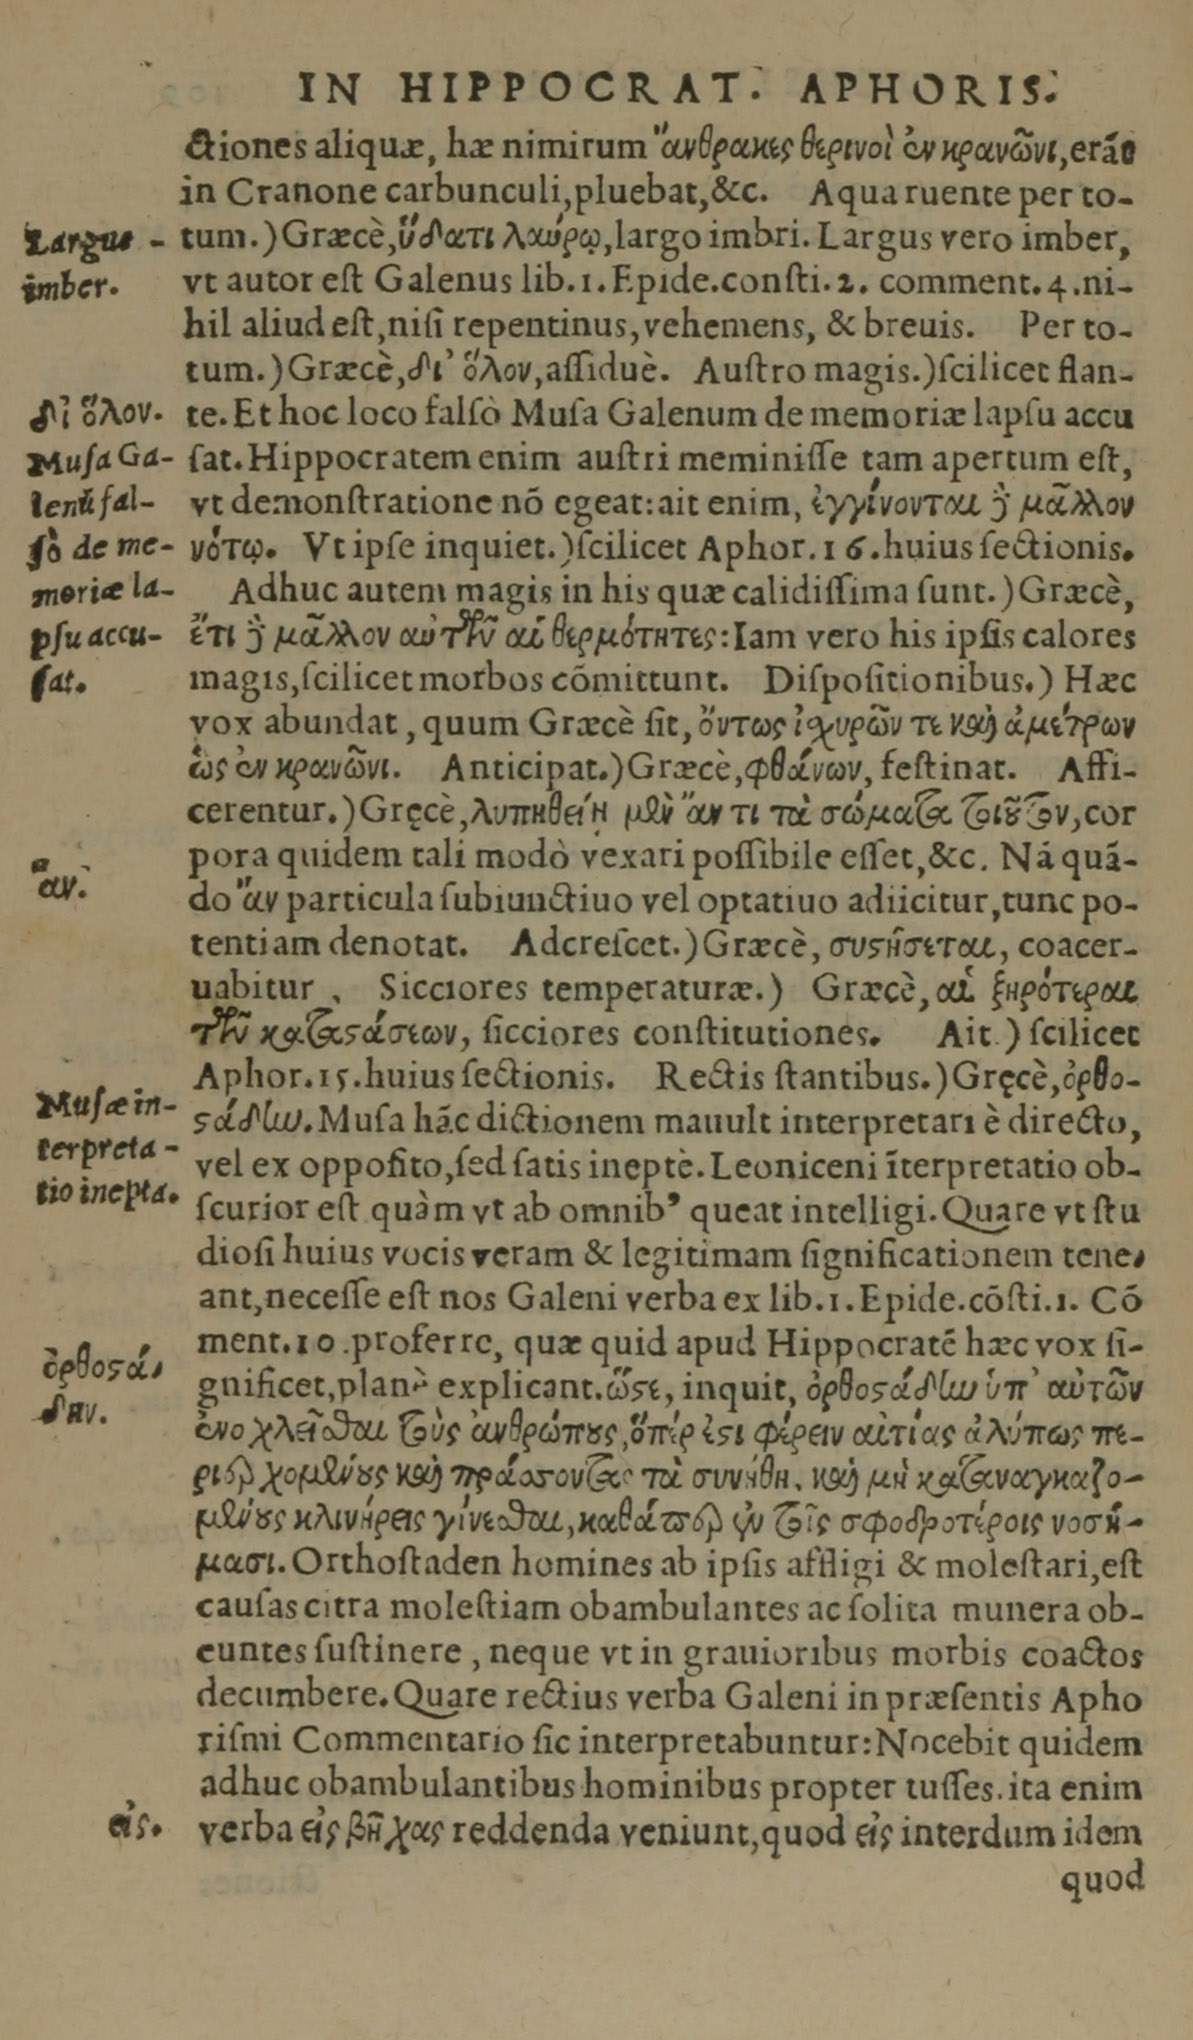 IN HIPPOCRAT. APHORIS.
ctiones aliquæ, hæ nimirum ἄνθρακες θερινοὶ ἐν κρανῶνι, erāt
in Cranone carbunculi, pluebat, &c. Aqua ruente per to-
tum.) Græcè, ὕδατι λαύρῳ, largo imbri. Largus vero imber,
vt autor est Galenus lib. 1. Epide. consti. 2. comment. 4. ni-
hil aliud est, nisi repentinus, vehemens, & breuis. Per to-
tum.) Græcè, δι' ὅλου, assiduè. Austro magis.) scilicet flan-
te. Et hoc loco falsò Musa Galenum de memoriæ lapsu accu
sat. Hippocratem enim austri meminisse tam apertum est,
vt demonstratione nō egeat: ait enim, ἐγγίνονται ȣ̓̀ μᾶλλον
νότῳ. Vt ipse inquiet.) scilicet Aphor. 16. huius sectionis.
Adhuc autem magis in his quæ calidissima sunt.) Græcè,
ἔτι δὲ μᾶλλον αὐτῶν αἱ θερμότητες: Iam vero his ipsis calores
magis, scilicet morbos cōmittunt. Dispositionibus.) Hæc
vox abundat, quum Græcè sit, ὄντως ἰσχυρῶν τε καὶ ἀμέτρων
ὡς ἐν κρανῶνι. Anticipat.) Græcè, φθάνων, festinat. Affi-
cerentur.) Gręcè, λυπηθείη μὲν ἄν τι τὰ σώματα τοιοῦτον, cor
pora quidem tali modò vexari possibile esset, &c. Nā quā-
do ἄν particula subiunctiuo vel optatiuo adiicitur, tunc po-
tentiam denotat. Adcrescet.) Græcè, συστήσεται, coacer-
uabitur. Sicciores temperaturæ.) Græcè, αἱ ξηρότεραι
τῶν καταστάσεων, sicciores constitutiones. Ait.) scilicet
Aphor. 15. huius sectionis. Rectis stantibus.) Gręcè, ὀρθο-
στάδην. Musa hāc dictionem mauult interpretari è directo,
vel ex opposito, sed satis ineptè. Leoniceni īterpretatio ob-
scurior est quàm vt ab omnib' queat intelligi. Quare vt stu
diosi huius vocis veram & legitimam significationem tene-
ant, necesse est nos Galeni verba ex lib. 1. Epide. cōsti. 1. Cō
ment. 10. proferre, quæ quid apud Hippocratē hæc vox si-
gnificet, planè explicant. ὥστε, inquit, ὀρθοστάδην ὑπ' αὐτῶν
ἐνοχλεῖσθαι τοὺς ἀνθρώπους, ὅπέρ ἐστι φέρειν αἰτίας ἀλύπως πε-
ριερχομένους καὶ πράσσοντας τὰ συνήθη, καὶ μὴ καταναγκαζο-
μένους κλινήρεις γίνεσθαι, καθάπερ ἐν τοῖς σφοδροτέροις νοσή-
μασι. Orthostaden homines ab ipsis affligi & molestari, est
causas citra molestiam obambulantes ac solita munera ob-
euntes sustinere, neque vt in grauioribus morbis coactos
decumbere. Quare rectius verba Galeni in præsentis Apho
rismi Commentario sic interpretabuntur: Nocebit quidem
adhuc obambulantibus hominibus propter tusses. ita enim
verba εἰς βῆχας reddenda veniunt, quod εἰς interdum idem
quod
Largus
imber.
δι' ὅλου.
Musa Ga-
lenū fal-
sò de me-
moriæ la-
psu accu-
sat.
ἄν.
Musæ in-
terpreta-
tio inepta.
ὀρθοστά-
δην.
εἰς.